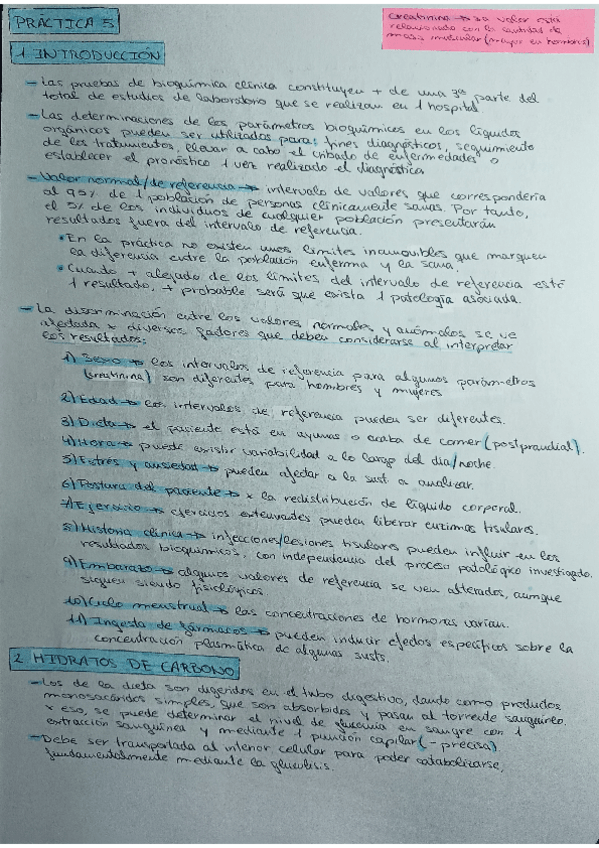 PRÁCTICA 5
creatinina → su valor está
relacionado con la cantidad de
masa muscular (mayor en hombres)
1 INTRODUCCIÓN
- Las pruebas de bioquímica clínica constituyen + de una 3ª parte del
total de estudios de laboratorio que se realizan en 1 hospital
- Las determinaciones de los parámetros bioquímicos en los líquidos
orgánicos pueden ser utilizados para: fines diagnósticos, seguimiento
de los tratamientos, llevar a cabo el cribado de enfermedades o
establecer el pronóstico 1 vez realizado el diagnóstico
- Valor normal/de referencia → intervalo de valores que correspondería
al 95% de 1 población de personas clínicamente sanas. Por tanto,
el 5% de los individuos de cualquier población presentarán
resultados fuera del intervalo de referencia.
• En la práctica no existen unos límites inamovibles que marquen
la diferencia entre la población enferma y la sana.
• Cuando + alejado de los límites del intervalo de referencia esté
1 resultado, + probable será que exista 1 patología asociada.
- La discriminación entre los valores normales y anómalos se ve
afectada x diversos factores que deben considerarse al interpretar
los resultados:
1) Sexo → los intervalos de referencia para algunos parámetros
(creatinina) son diferentes para hombres y mujeres
2) Edad → los intervalos de referencia pueden ser diferentes.
3) Dieta → el paciente está en ayunas o acaba de comer (postprandial).
4) Hora → puede existir variabilidad a lo largo del día/noche.
5) Estrés y ansiedad → pueden afectar a la sust a analizar.
6) Postura del paciente → x la redistribución de líquido corporal.
7) Ejercicio → ejercicios extenuantes pueden liberar enzimas tisulares.
8) Historia clínica → infecciones/lesiones tisulares pueden influir en los
resultados bioquímicos, con independencia del proceso patológico investigado.
9) Embarazo → algunos valores de referencia se ven alterados, aunque
siguen siendo fisiológicos.
10) Ciclo menstrual → las concentraciones de hormonas varían.
11) Ingesta de fármacos → pueden inducir efectos específicos sobre la
concentración plasmática de algunas susts.
2 HIDRATOS DE CARBONO
- Los de la dieta son digeridos en el tubo digestivo, dando como productos
monosacáridos simples, que son absorbidos y pasan al torrente sanguíneo.
x eso, se puede determinar el nivel de glucosa en sangre con 1
extracción sanguínea y mediante 1 punción capilar (- precisa)
- Debe ser transportada al interior celular para poder catabolizarse,
fundamentalmente mediante la glucólisis.